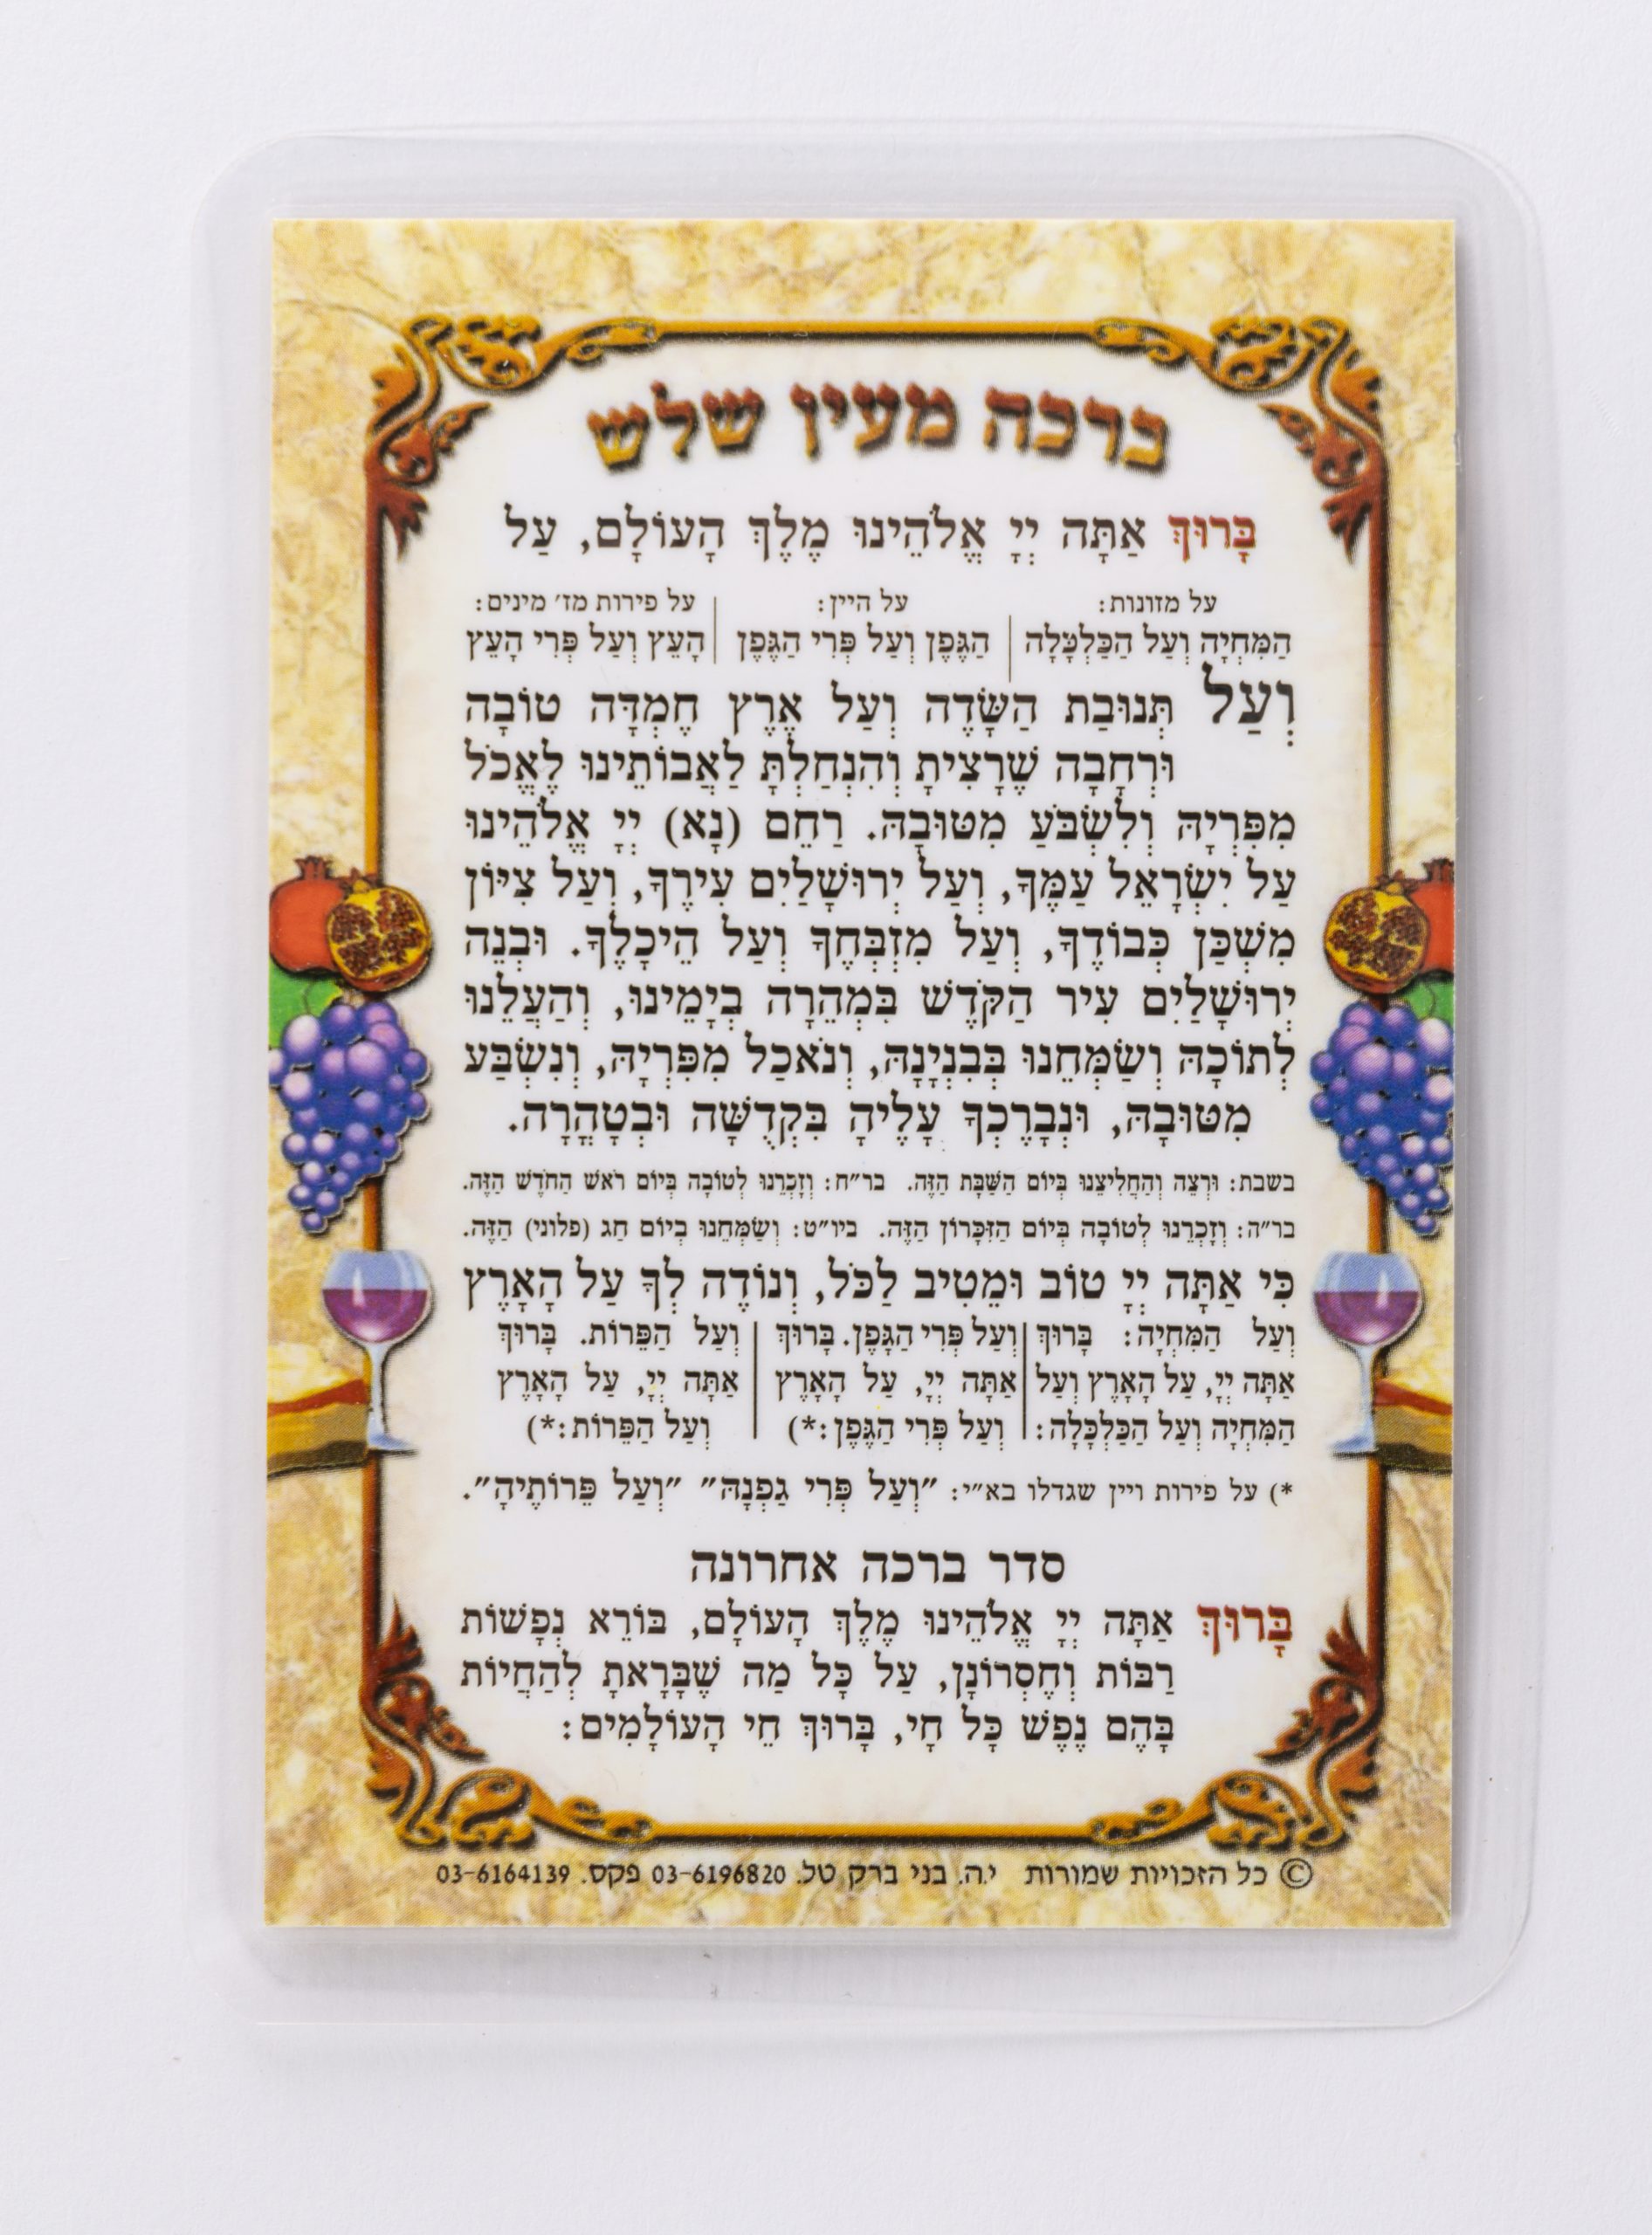 ברכה מעין שלש
בָּרוּךְ אַתָּה יְיָ אֱלֹהֵינוּ מֶלֶךְ הָעוֹלָם, עַל
על מזונות: על היין: על פירות מז׳ מינים:
הַמִּחְיָה וְעַל הַכַּלְכָּלָה הַגֶּפֶן וְעַל פְּרִי הַגֶּפֶן הָעֵץ וְעַל פְּרִי הָעֵץ
וְעַל תְּנוּבַת הַשָּׂדֶה וְעַל אֶרֶץ חֶמְדָּה טוֹבָה
וּרְחָבָה שֶׁרָצִיתָ וְהִנְחַלְתָּ לַאֲבוֹתֵינוּ לֶאֱכֹל
מִפִּרְיָהּ וְלִשְׂבֹּעַ מִטּוּבָהּ. רַחֵם (נָא) יְיָ אֱלֹהֵינוּ
עַל יִשְׂרָאֵל עַמֶּךָ, וְעַל יְרוּשָׁלַיִם עִירֶךָ, וְעַל צִיּוֹן
מִשְׁכַּן כְּבוֹדֶךָ, וְעַל מִזְבְּחֶךָ וְעַל הֵיכָלֶךָ. וּבְנֵה
יְרוּשָׁלַיִם עִיר הַקֹּדֶשׁ בִּמְהֵרָה בְיָמֵינוּ, וְהַעֲלֵנוּ
לְתוֹכָהּ וְשַׂמְּחֵנוּ בְּבִנְיָנָהּ, וְנֹאכַל מִפִּרְיָהּ, וְנִשְׂבַּע
מִטּוּבָהּ, וּנְבָרֶכְךָ עָלֶיהָ בִּקְדֻשָּׁה וּבְטָהֳרָה.
בשבת: וּרְצֵה וְהַחֲלִיצֵנוּ בְּיוֹם הַשַּׁבָּת הַזֶּה. בר״ח: וְזָכְרֵנוּ לְטוֹבָה בְּיוֹם רֹאשׁ הַחֹדֶשׁ הַזֶּה.
בר״ה: וְזָכְרֵנוּ לְטוֹבָה בְּיוֹם הַזִּכָּרוֹן הַזֶּה. ביו״ט: וְשַׂמְּחֵנוּ בְּיוֹם חַג (פלוני) הַזֶּה.
כִּי אַתָּה יְיָ טוֹב וּמֵטִיב לַכֹּל, וְנוֹדֶה לְּךָ עַל הָאָרֶץ
וְעַל הַמִּחְיָה: בָּרוּךְ וְעַל פְּרִי הַגָּפֶן. בָּרוּךְ וְעַל הַפֵּרוֹת. בָּרוּךְ
אַתָּה יְיָ, עַל הָאָרֶץ וְעַל אַתָּה יְיָ, עַל הָאָרֶץ אַתָּה יְיָ, עַל הָאָרֶץ
הַמִּחְיָה וְעַל הַכַּלְכָּלָה: וְעַל פְּרִי הַגֶּפֶן:*) וְעַל הַפֵּרוֹת:*)
*) על פירות ויין שגדלו בא״י: ״וְעַל פְּרִי גַפְנָהּ״ ״וְעַל פֵּרוֹתֶיהָ״.
סדר ברכה אחרונה
בָּרוּךְ אַתָּה יְיָ אֱלֹהֵינוּ מֶלֶךְ הָעוֹלָם, בּוֹרֵא נְפָשׁוֹת
רַבּוֹת וְחֶסְרוֹנָן, עַל כָּל מַה שֶּׁבָּרָאתָ לְהַחֲיוֹת
בָּהֶם נֶפֶשׁ כָּל חָי, בָּרוּךְ חֵי הָעוֹלָמִים:
© כל הזכויות שמורות י.ה. בני ברק טל. 03-6196820 פקס. 03-6164139